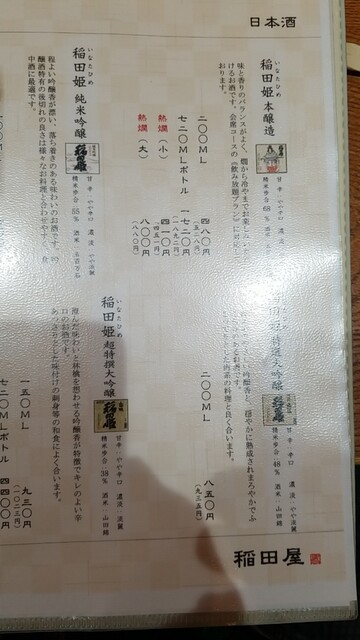 日本酒
いなたひめ
稲田姫 本醸造
甘辛 やや辛口 濃淡
精米歩合 68%
味と香りのバランスがよく、燗から冷やまでお楽しみ
けるお酒です。会席コースの《飲み放題プラン》に対応し
おります。
二〇〇ML 四八〇円
(五二八円)
七二〇MLボトル 一七二〇円
(一八九二円)
熱燗(小) 四一〇円
(四五一円)
熱燗(大) 八〇〇円
(八八〇円)
いなたひめ
稲田姫 純米吟醸
甘辛 やや辛口 濃淡 やや淡麗
精米歩合 55% 酒米 五百万石
程よい吟醸香が漂い、落ち着きのある味わいのお酒です。吟
醸酒特有の後切れの良さは様々なお料理と合わせやすく、食
中酒に最適です。
大吟醸
甘辛 辛口 濃淡 やや淡麗
精米歩合 48% 酒米 山田錦
吟醸香と、穏やかに熟成されまろやかでふ
のあるお酒です。
とした出系の料理と良く合います。
二〇〇ML 八五〇円
(九三五円)
いなたひめ
稲田姫 超特撰大吟醸
甘辛 やや辛口 濃淡 淡麗
精米歩合 38% 酒米 山田錦
澄んだ味わいと林檎を想わせる吟醸香が特徴でキレのよい辛
口のお酒です。
あっさりとした味付けの刺身等の和食によく合います。
一五〇ML 九三〇円
(一〇二三円)
七二〇MLボトル 四四〇〇円
稲田屋